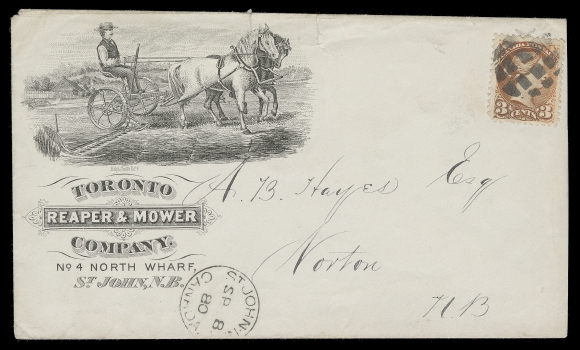 TORONTO
REAPER & MOWER
COMPANY.
No 4 NORTH WHARF,
ST JOHN, N.B.
A. B. Hayes Esq
Norton
N B
3 CENTS 3
ST JOHN
SP 8
80
CANADA